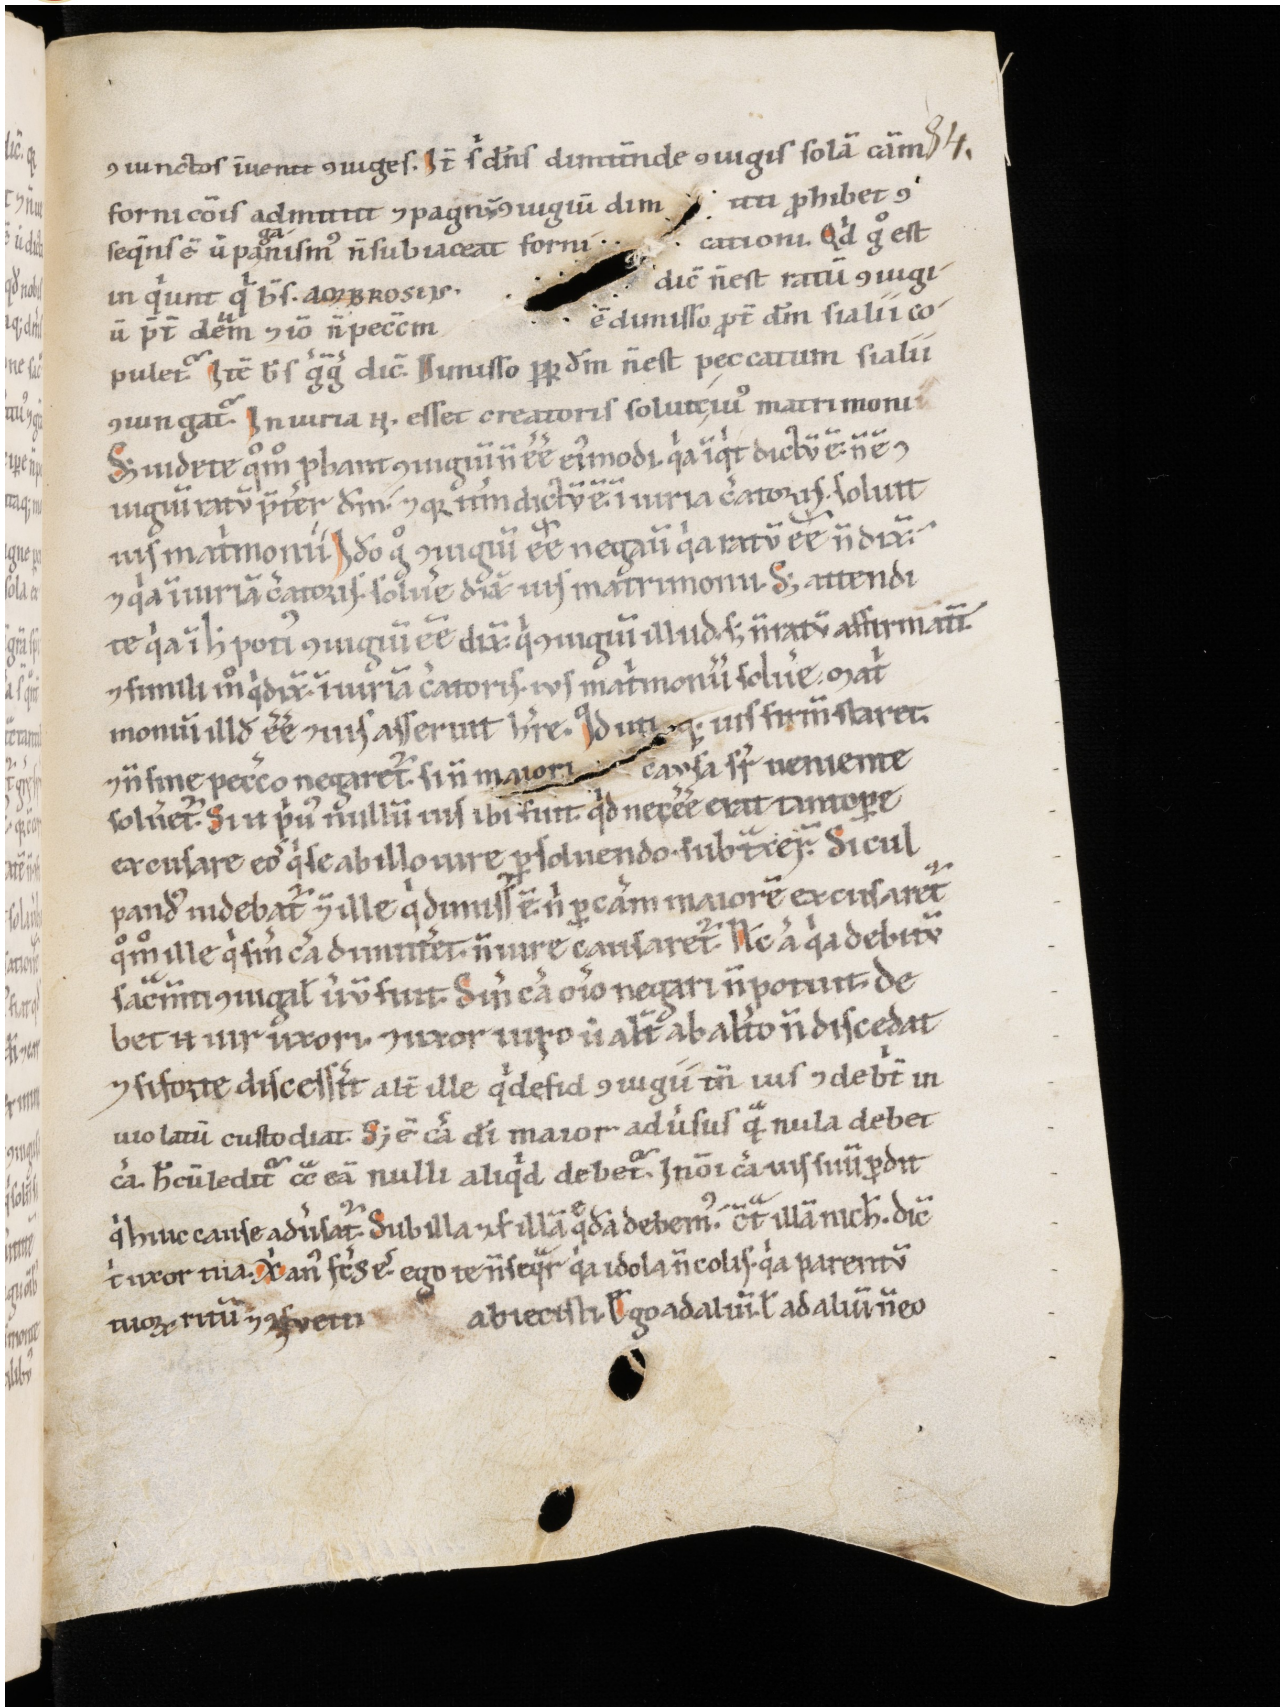 84.
ꝯiunctos īuenit ꝯiuges. It̄ s̓ dn̄s dimittende ꝯiugis solā cām
fornicōis admittit ⁊ pagnꝰ ꝯiugiū dim itti ꝓhibet ꝯ
seqn̄s ē ū paganismꝰ n̄ subiaceat forni cationi. Qd̓ gͦ est
inqͥunt qͥ b̄s. AMBROSIUS. dic̄ n̄ est ratū ꝯiugi
ū p̄t dēm ⁊ iō n̄ pecc̄m ē dimisso ꝓt̄ dm̄ si alii co
puletᷣ. Itē b̄s gͥgͥ dic̄. Dimisso ꝓp̄ dm̄ n̄ est peccatum si alii
ꝯiungatᷣ. Iniuria n̄. esset creatoris soluit iuꝰ matrimoni
S; uidete qͦmͦ ꝓbant ꝯiugiū n̄ ēē eiꝰmodi. qͥa īqͥt dictū ē. n̄ ē ꝯ
iugiū ratū p̄ter dm̄. ⁊ qꝛ itm̄ dictū ē. īiuria c̓atoris. soluit
ius mat̓monii. Ido gͦ ꝯiugiū ēē negaū qͥa ratū ēē n̄ dix̄.
⁊ qͥa īiuriā c̓atoris. solūe dix̄ ius matrimonii. S; attendi
te qͥa ī h̄ potiꝰ ꝯiugiū ēē dix̄. qͥ ꝯiugiū illud. s; n̄ ratū affirmaū.
⁊ simili mͦ qͥ dix̄. īiuriā c̓atoris. ius mat̓monii soluēe. mat̓
monii illd̓ ēē ⁊ ius asseruit hr̄e. Id uti q;. ius firm̄ staret.
⁊ n̄ sine pecc̄o negaretᷣ. si n̄ maiori causa sꝑ ueniente
soluetᷣ. Si n̄ p̓uꝰ nullū ius ibi fuit. qͥd necēē erat tantope
excusare eoꝰ qͥ se ab illo iure ꝑsoluendo. subt̄xer̄. Si cul
pandꝰ uidebatᷣ ⁊ ille qͥ dimissꝰ ē. n̄ ꝑ cām maiorē excusaretᷣ
qͦmͦ ille qͥ sin̄ c̄a dimittet. n̄ iure causaretᷣ. Nc̄ ā qͥa debitū
sacm̄ti ꝯiugal̄ ūū fuit. Sin̄ c̄a oīo negari n̄ potuit. de
bet n̄ uir uxori. ⁊ uxor uiro ū alt̄ ab alt̄o n̄ discedat
⁊ si forte discesserit alt̄ ille qͥ de fid ꝯiugii tn̄ ius ⁊ debt̄ in
uiolatū custodiat. S; ē c̄a di maior adūsus qͣ nula debet
c̄a. h̄ cū leditᷣ cͣ eā nulli aliqͥd debetᷣ. In ōi c̄a ius suū ꝑdit
qͥ huic cause adūsatᷣ. Sub illa ⁊ ꝑ illā qͥdā debemꝰ. cͣt illā nich̄. dic̄
t̓ uxor tua. Xͥanꝰ fc̄s es̓. ego te n̄ seqͣr qͥa idola n̄ colis. qͥa parentū
tuoꝝ ritū ⁊ ꝯsueti abiecisti. Ego ad aliū. l̄ ad aliū n̄ eo